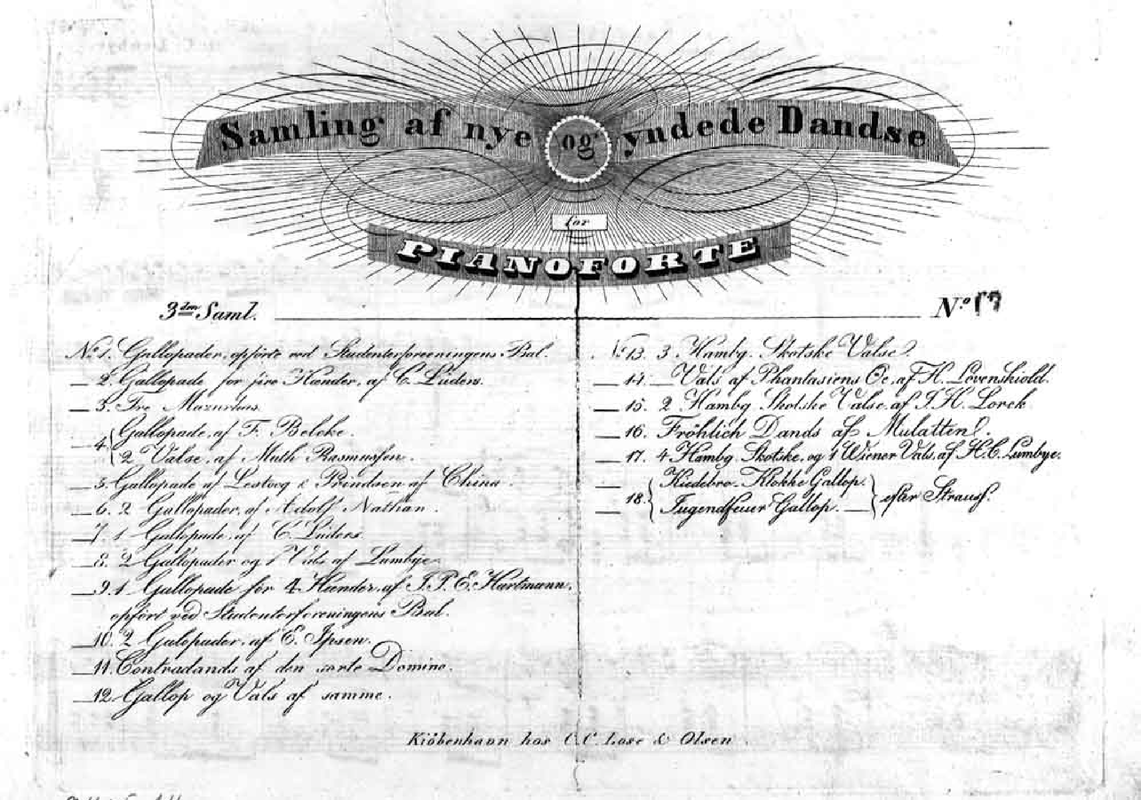 Samling af nye og yndede Dandse
for
PIANOFORTE
3die Saml.
No. 17
No. 1. Gallopader, opförte ved Studenterforeningens Bal.
2. Gallopade for fire Hænder, af C. Lüders.
3. Tre Mazurkas.
4. Gallopade, af F. Belcke.
2 Valse, af Muth Rasmussen.
5. Gallopade af Lestocq & Prindsen af China.
6. 2 Gallopader, af Adolf Nathan.
7. 1 Gallopade, af C. Lüders.
8. 2 Gallopader og 1 Vals af Lumbye.
9. 1 Gallopade för 4 Hænder, af J. P. E. Hartmann,
opfört ved Studenterforeningens Bal.
10. 2 Galopader, af E. Ipsen.
11. Contradands af den sorte Domino.
12. Gallop og Vals af samme.
No. 13. 3 Hambg. Skotske Valse.
14. Vals af Phantasiens Öe, af H. Lövenskiold.
15. 2 Hambg. Skotske Valse, af J. H. Lorck
16. Fröhlich Dands af Mulatten.
17. 4 Hambg. Skotske, og 1 Wiener Vals, af H. C. Lumbye.
18. Hiedebro-Klokke Gallop.
Jugendfeuer Gallop. efter Strauss.
Kiöbenhavn hos C. C. Lose & Olsen